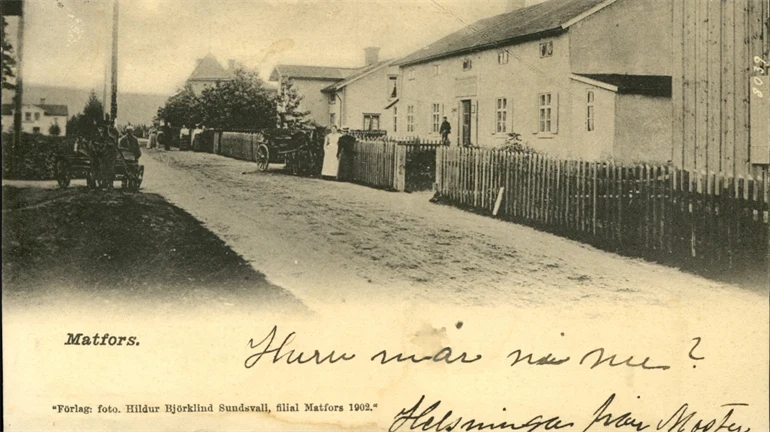 Matfors.
Huru mår nå ni?
"Förlag: foto. Hildur Björklind Sundsvall, filial Matfors 1902."
Helsningar från Moster